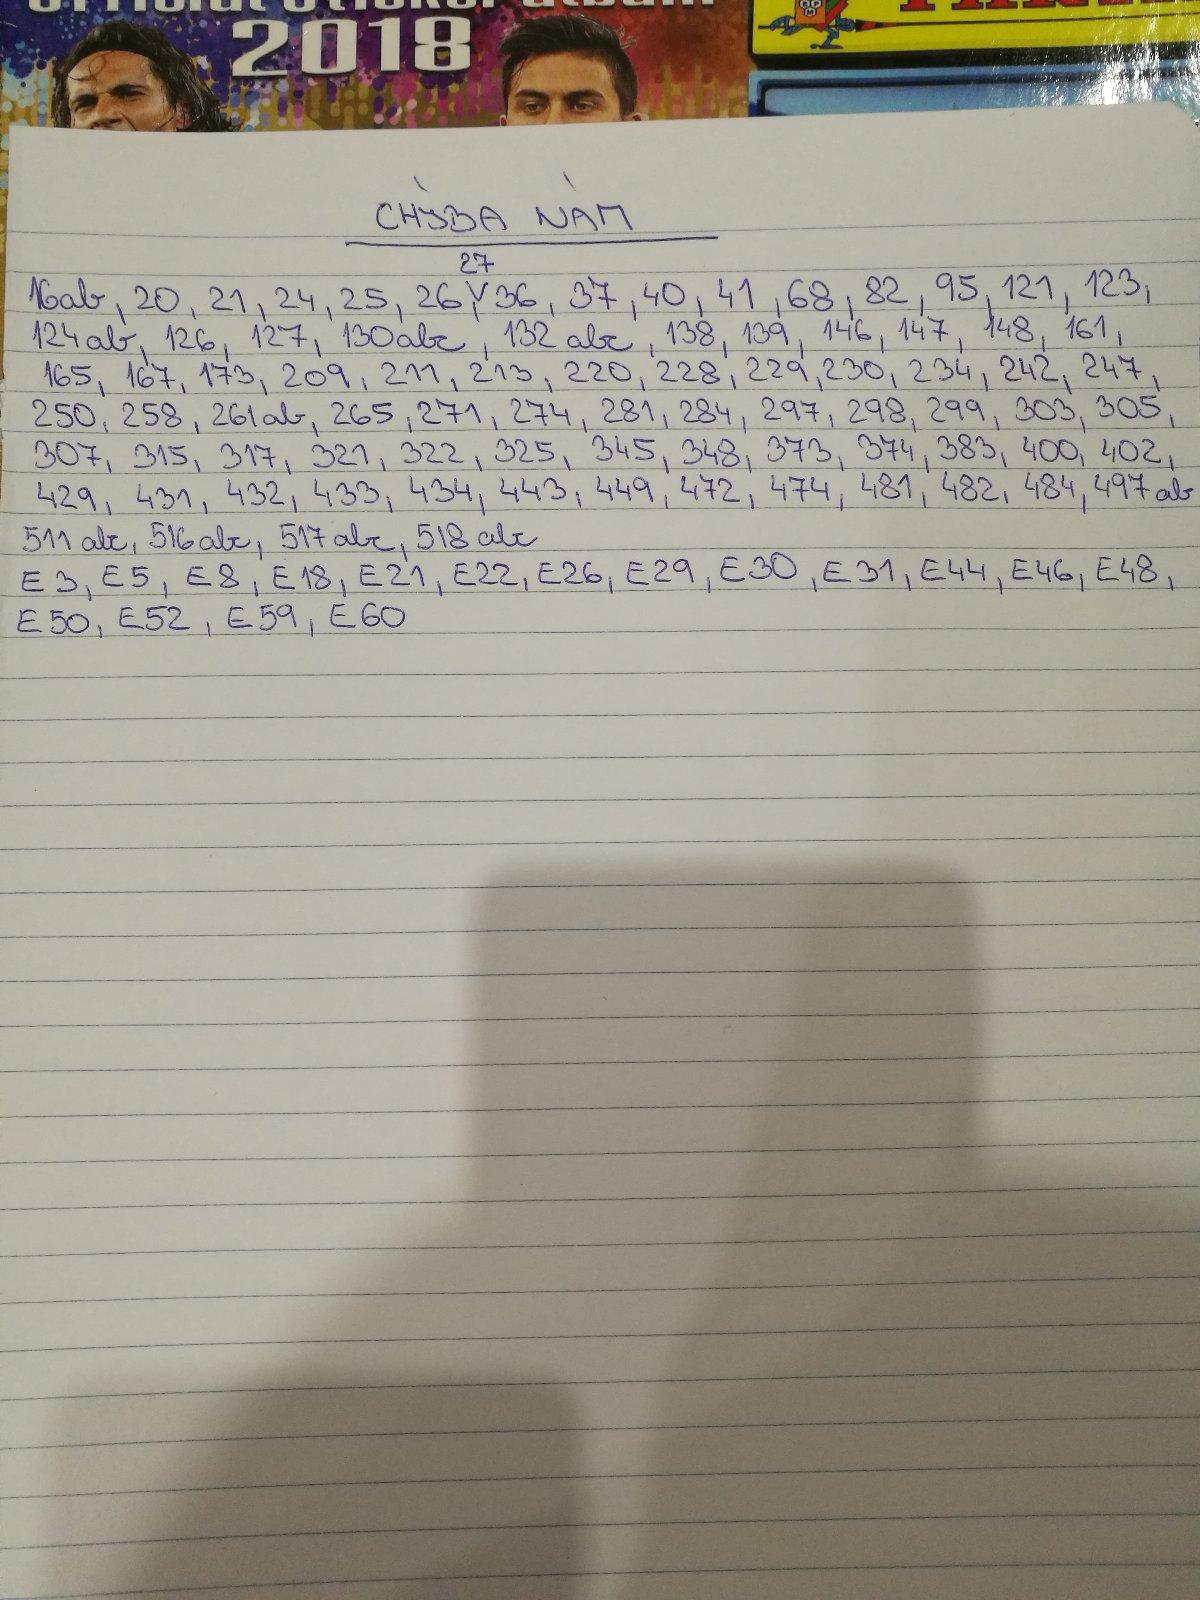 official sticker album
2018
CHÝBA NÁM
27
16ab, 20, 21, 24, 25, 26, 36, 37, 40, 41, 68, 82, 95, 121, 123,
124ab, 126, 127, 130abc, 132abc, 138, 139, 146, 147, 148, 161,
165, 167, 173, 209, 211, 213, 220, 228, 229, 230, 234, 242, 247,
250, 258, 261ab, 265, 271, 274, 281, 284, 297, 298, 299, 303, 305,
307, 315, 317, 321, 322, 325, 345, 348, 373, 374, 383, 400, 402,
429, 431, 432, 433, 434, 443, 449, 472, 474, 481, 482, 484, 497ab
511abc, 516abc, 517abc, 518abc
E3, E5, E8, E18, E21, E22, E26, E29, E30, E31, E44, E46, E48,
E50, E52, E59, E60